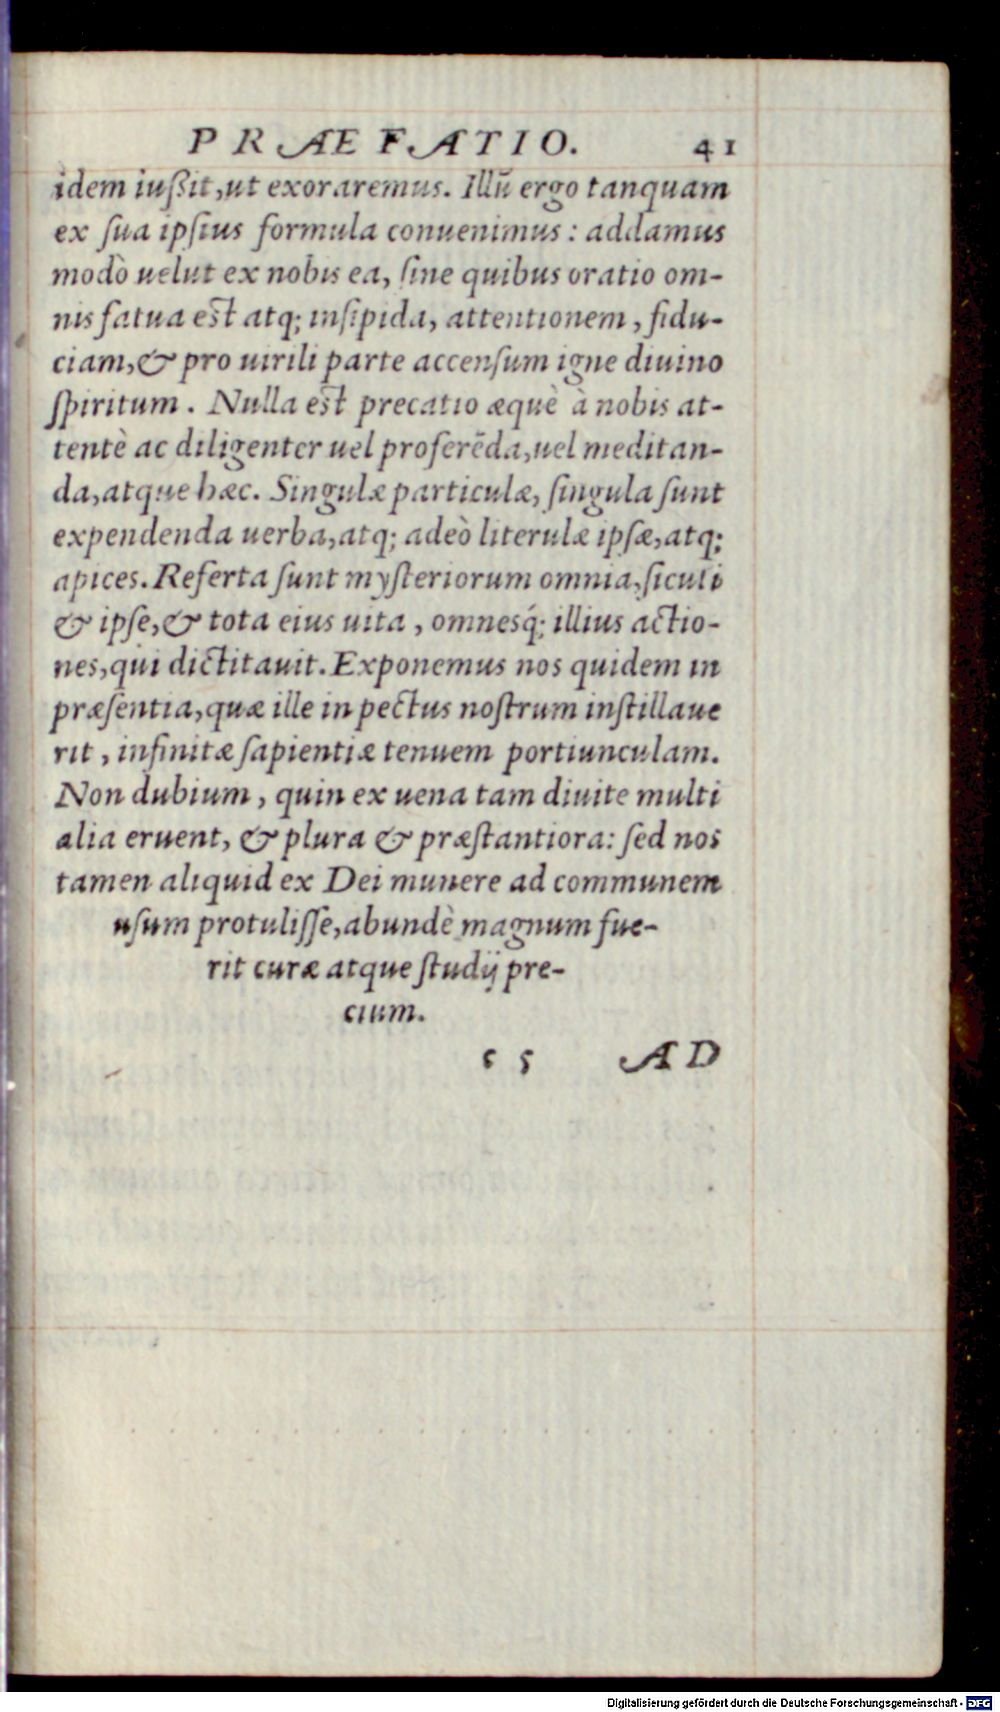 PRÆFATIO. 41
idem iußit, ut exoraremus. Illũ ergo tanquam
ex sua ipsius formula conuenimus: addamus
modò uelut ex nobis ea, sine quibus oratio om-
nis fatua est atq; insipida, attentionem, fidu-
ciam, & pro uirili parte accensum igne diuino
spiritum. Nulla est precatio æquè à nobis at-
tentè ac diligenter uel proferēda, uel meditan-
da, atque hæc. Singulæ particulæ, singula sunt
expendenda uerba, atq; adeò literulæ ipsæ, atq;
apices. Referta sunt mysteriorum omnia, sicuti
& ipse, & tota eius uita, omnesq́; illius actio-
nes, qui dictitauit. Exponemus nos quidem in
præsentia, quæ ille in pectus nostrum instillaue
rit, infinitæ sapientiæ tenuem portiunculam.
Non dubium, quin ex uena tam diuite multi
alia eruent, & plura & præstantiora: sed nos
tamen aliquid ex Dei munere ad communem
usum protulisse, abundè magnum fue-
rit curæ atque studij pre-
cium.
c 5 AD
Digitalisierung gefördert durch die Deutsche Forschungsgemeinschaft - DFG